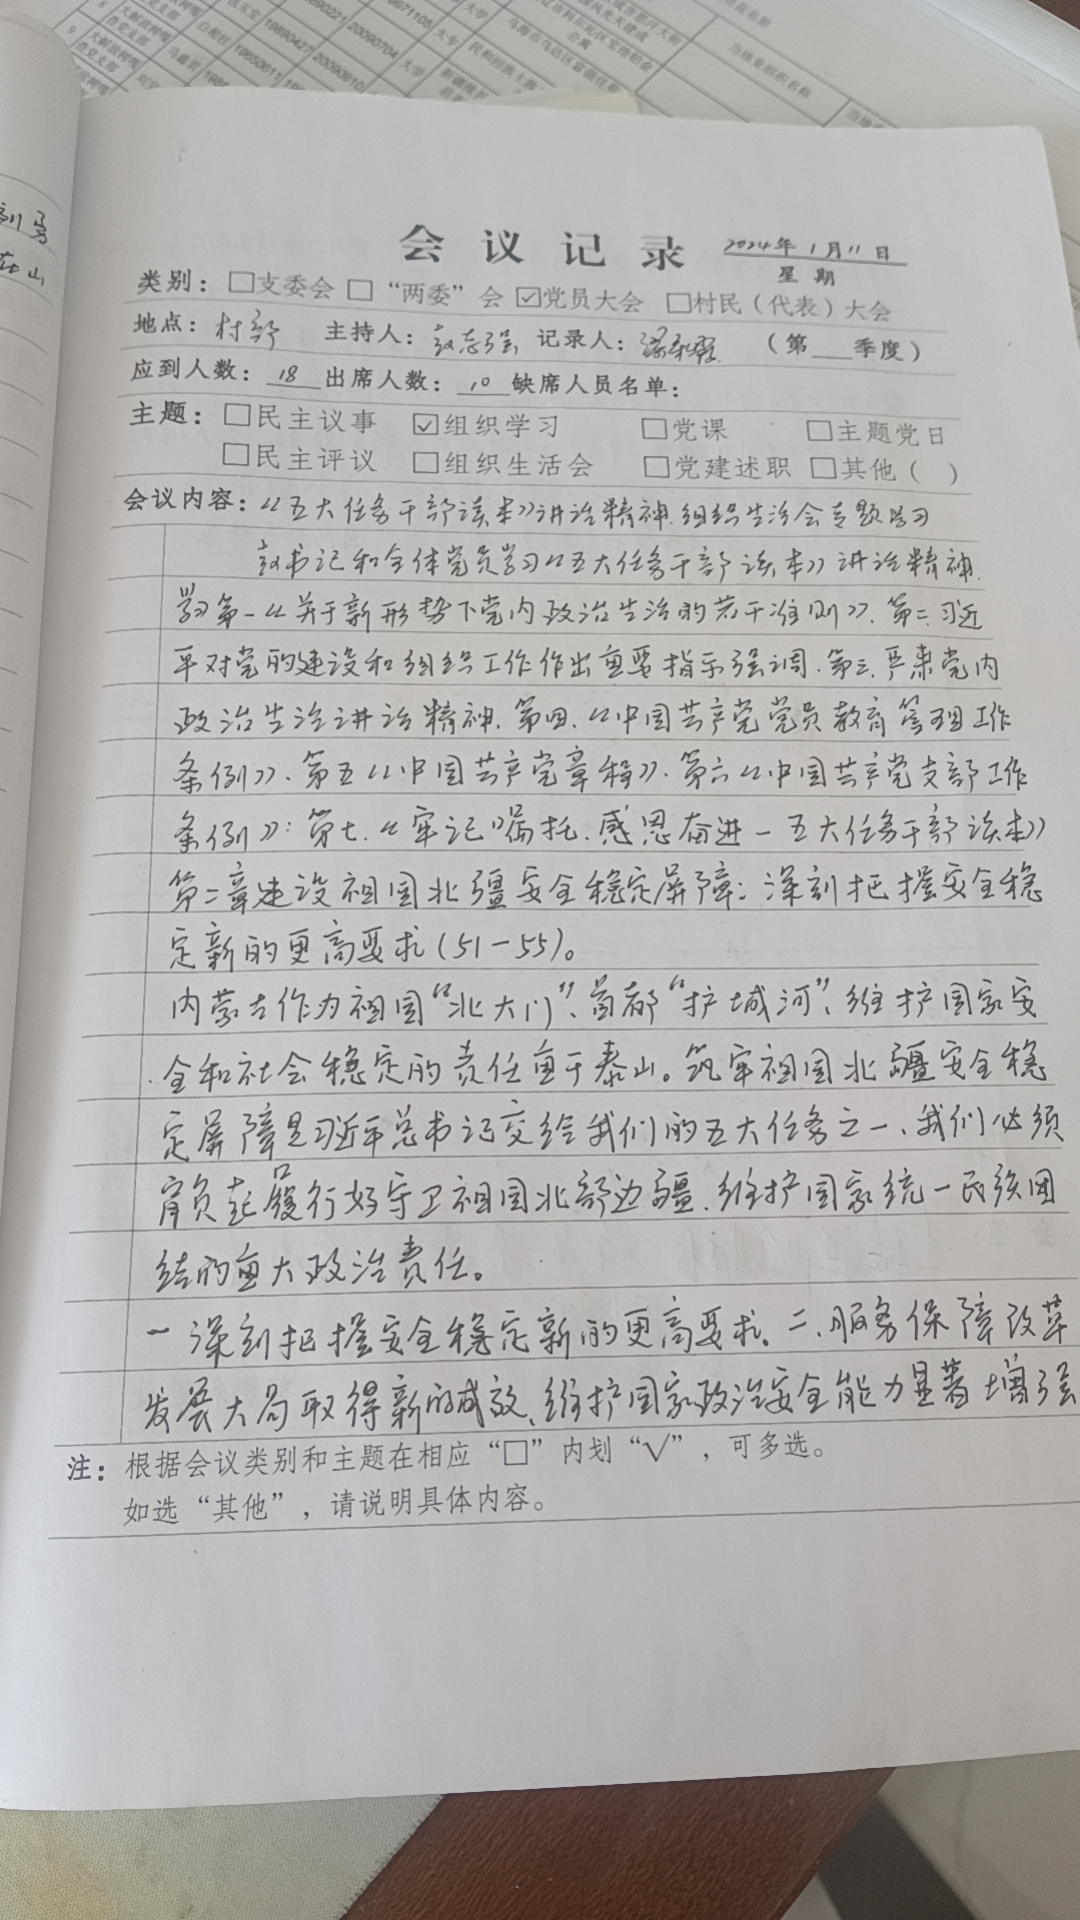 会议记录 2024年1月11日
星期
类别：□支委会 □“两委”会 ☑党员大会 □村民（代表）大会
地点：村部 主持人：赵志强 记录人： （第 季度）
应到人数：18 出席人数：10 缺席人员名单：
主题：□民主议事 ☑组织学习 □党课 □主题党日
□民主评议 □组织生活会 □党建述职 □其他（ ）
会议内容：《五大任务干部读本》讲话精神.组织生活会专题学习
赵书记和全体党员学习《五大任务干部读本》讲话精神.
学习第一《关于新形势下党内政治生活的若干准则》.第二、习近
平对党的建设和组织工作作出重要指示强调.第三.严肃党内
政治生活讲话精神.第四.《中国共产党党员教育管理工作
条例》.第五《中国共产党章程》.第六《中国共产党支部工作
条例》：第七.《牢记嘱托.感恩奋进－五大任务干部读本》
第二章建设祖国北疆安全稳定屏障：深刻把握安全稳
定新的更高要求(51－55)。
内蒙古作为祖国“北大门”、首都“护城河”，维护国家安
全和社会稳定的责任重于泰山。筑牢祖国北疆安全稳
定屏障是习近平总书记交给我们的五大任务之一、我们必须
肩负起履行好守卫祖国北部边疆.维护国家统一民族团
结的重大政治责任。
一 深刻把握安全稳定新的更高要求。二、服务保障改革
发展大局取得新的成效、维护国家政治安全能力显著增强
注：根据会议类别和主题在相应“□”内划“√”，可多选。
如选“其他”，请说明具体内容。